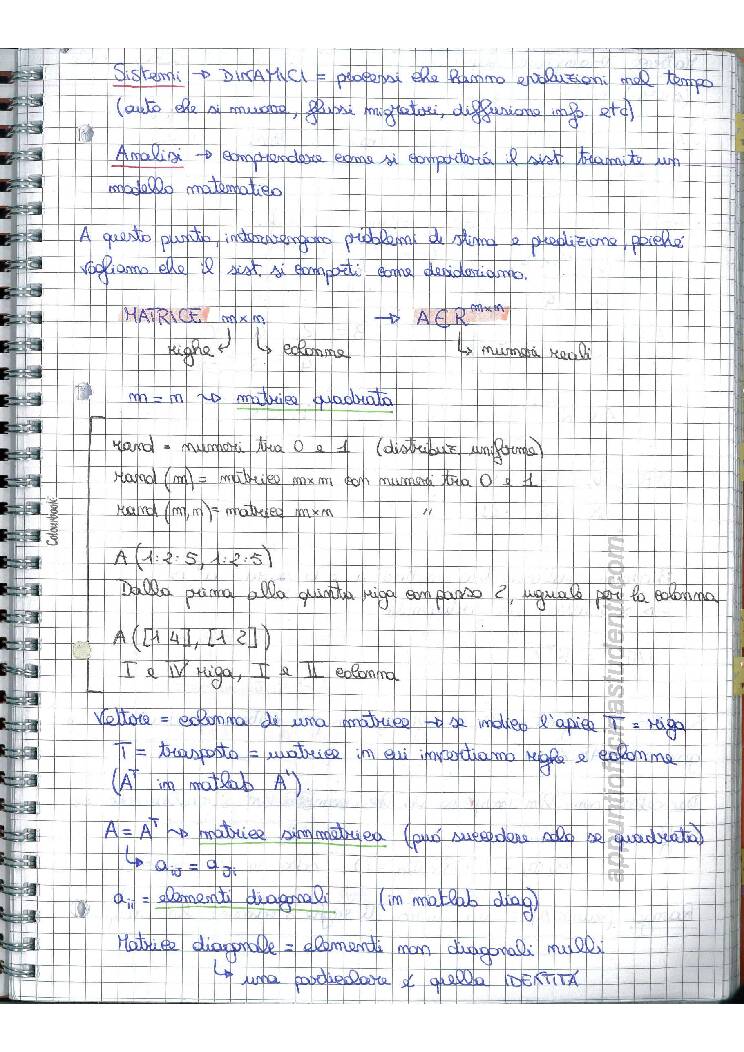 Sistemi → DINAMICI = processi che hanno evoluzioni nel tempo
(auto che si muove, flussi migratori, diffusione info. etc)
Analisi → comprendere come si comporterá il sist. tramite un
modello matematico
A questo punto, intervengono problemi di stima e predizione, poiché
vogliamo che il sist. si comporti come desideriamo.
MATRICE m×n → A ∈ R^m×n
righe ↵ ↳ colonne ↳ numeri reali
m = n ⤳ matrice quadrata
rand = numeri tra 0 e 1 (distribuz. uniforme)
rand (n) = matrice n×n con numeri tra 0 e 1
rand (m,n) = matrice m×n "
A (1:2:5, 1:2:5)
Dalla prima alla quinta riga con passo 2, uguale per la colonna
A ([1 4], [1 2])
I e IV riga, I e II colonna
Vettore = colonna di una matrice → se indico l'apice T = riga
T = trasposto = matrice in cui invertiamo righe e colonne
(A^T in matlab A').
A = A^T ⤳ matrice simmetrica (può succedere solo se quadrata)
↳ a_ij = a_ji
a_ii = elementi diagonali (in matlab diag)
Matrice diagonale = elementi non diagonali nulli
↳ una particolare é quella IDENTITÁ
Colourbook